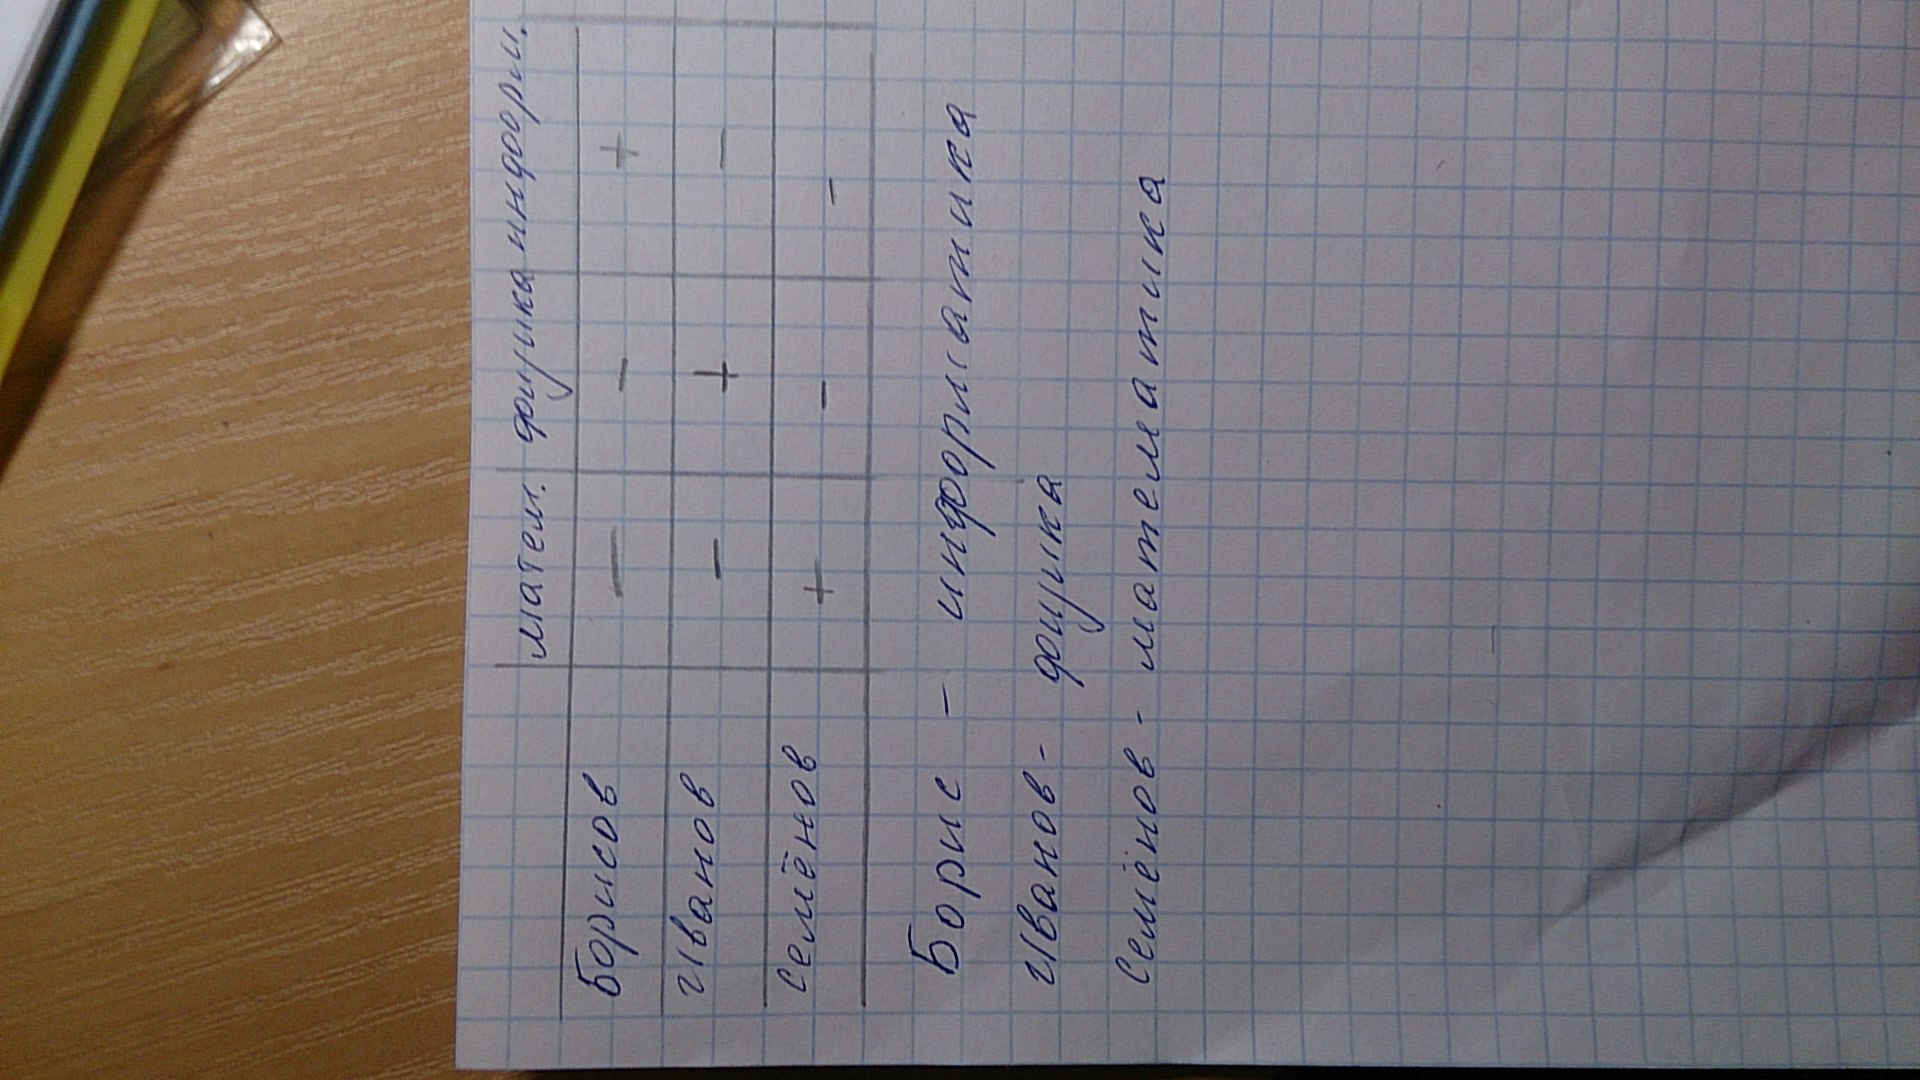 матем. физика информ.
Борисов – – +
Иванов – + –
Семёнов + – –
Борис – информатика
Иванов - физика
Семёнов - математика